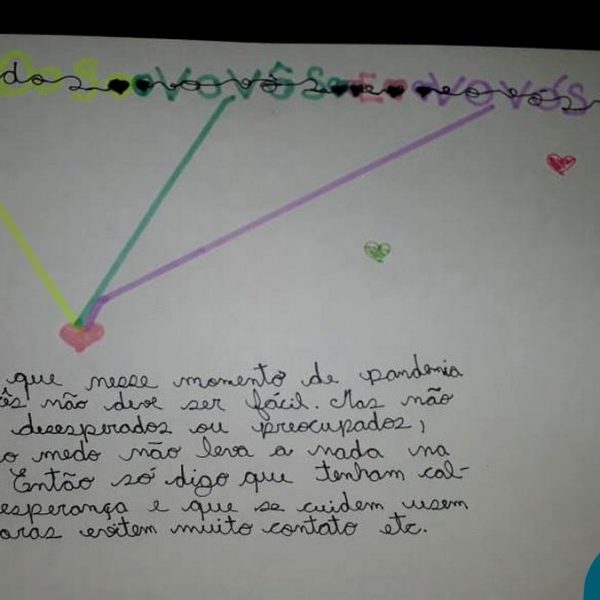 dos vovôs e vovós
que nesse momento de pandemia
ês não deve ser fácil. Mas não
desesperados ou preocupados,
o medo não leva a nada na
Então só digo que tenham cal-
esperança e que se cuidem usem
aras evitem muito contato etc.